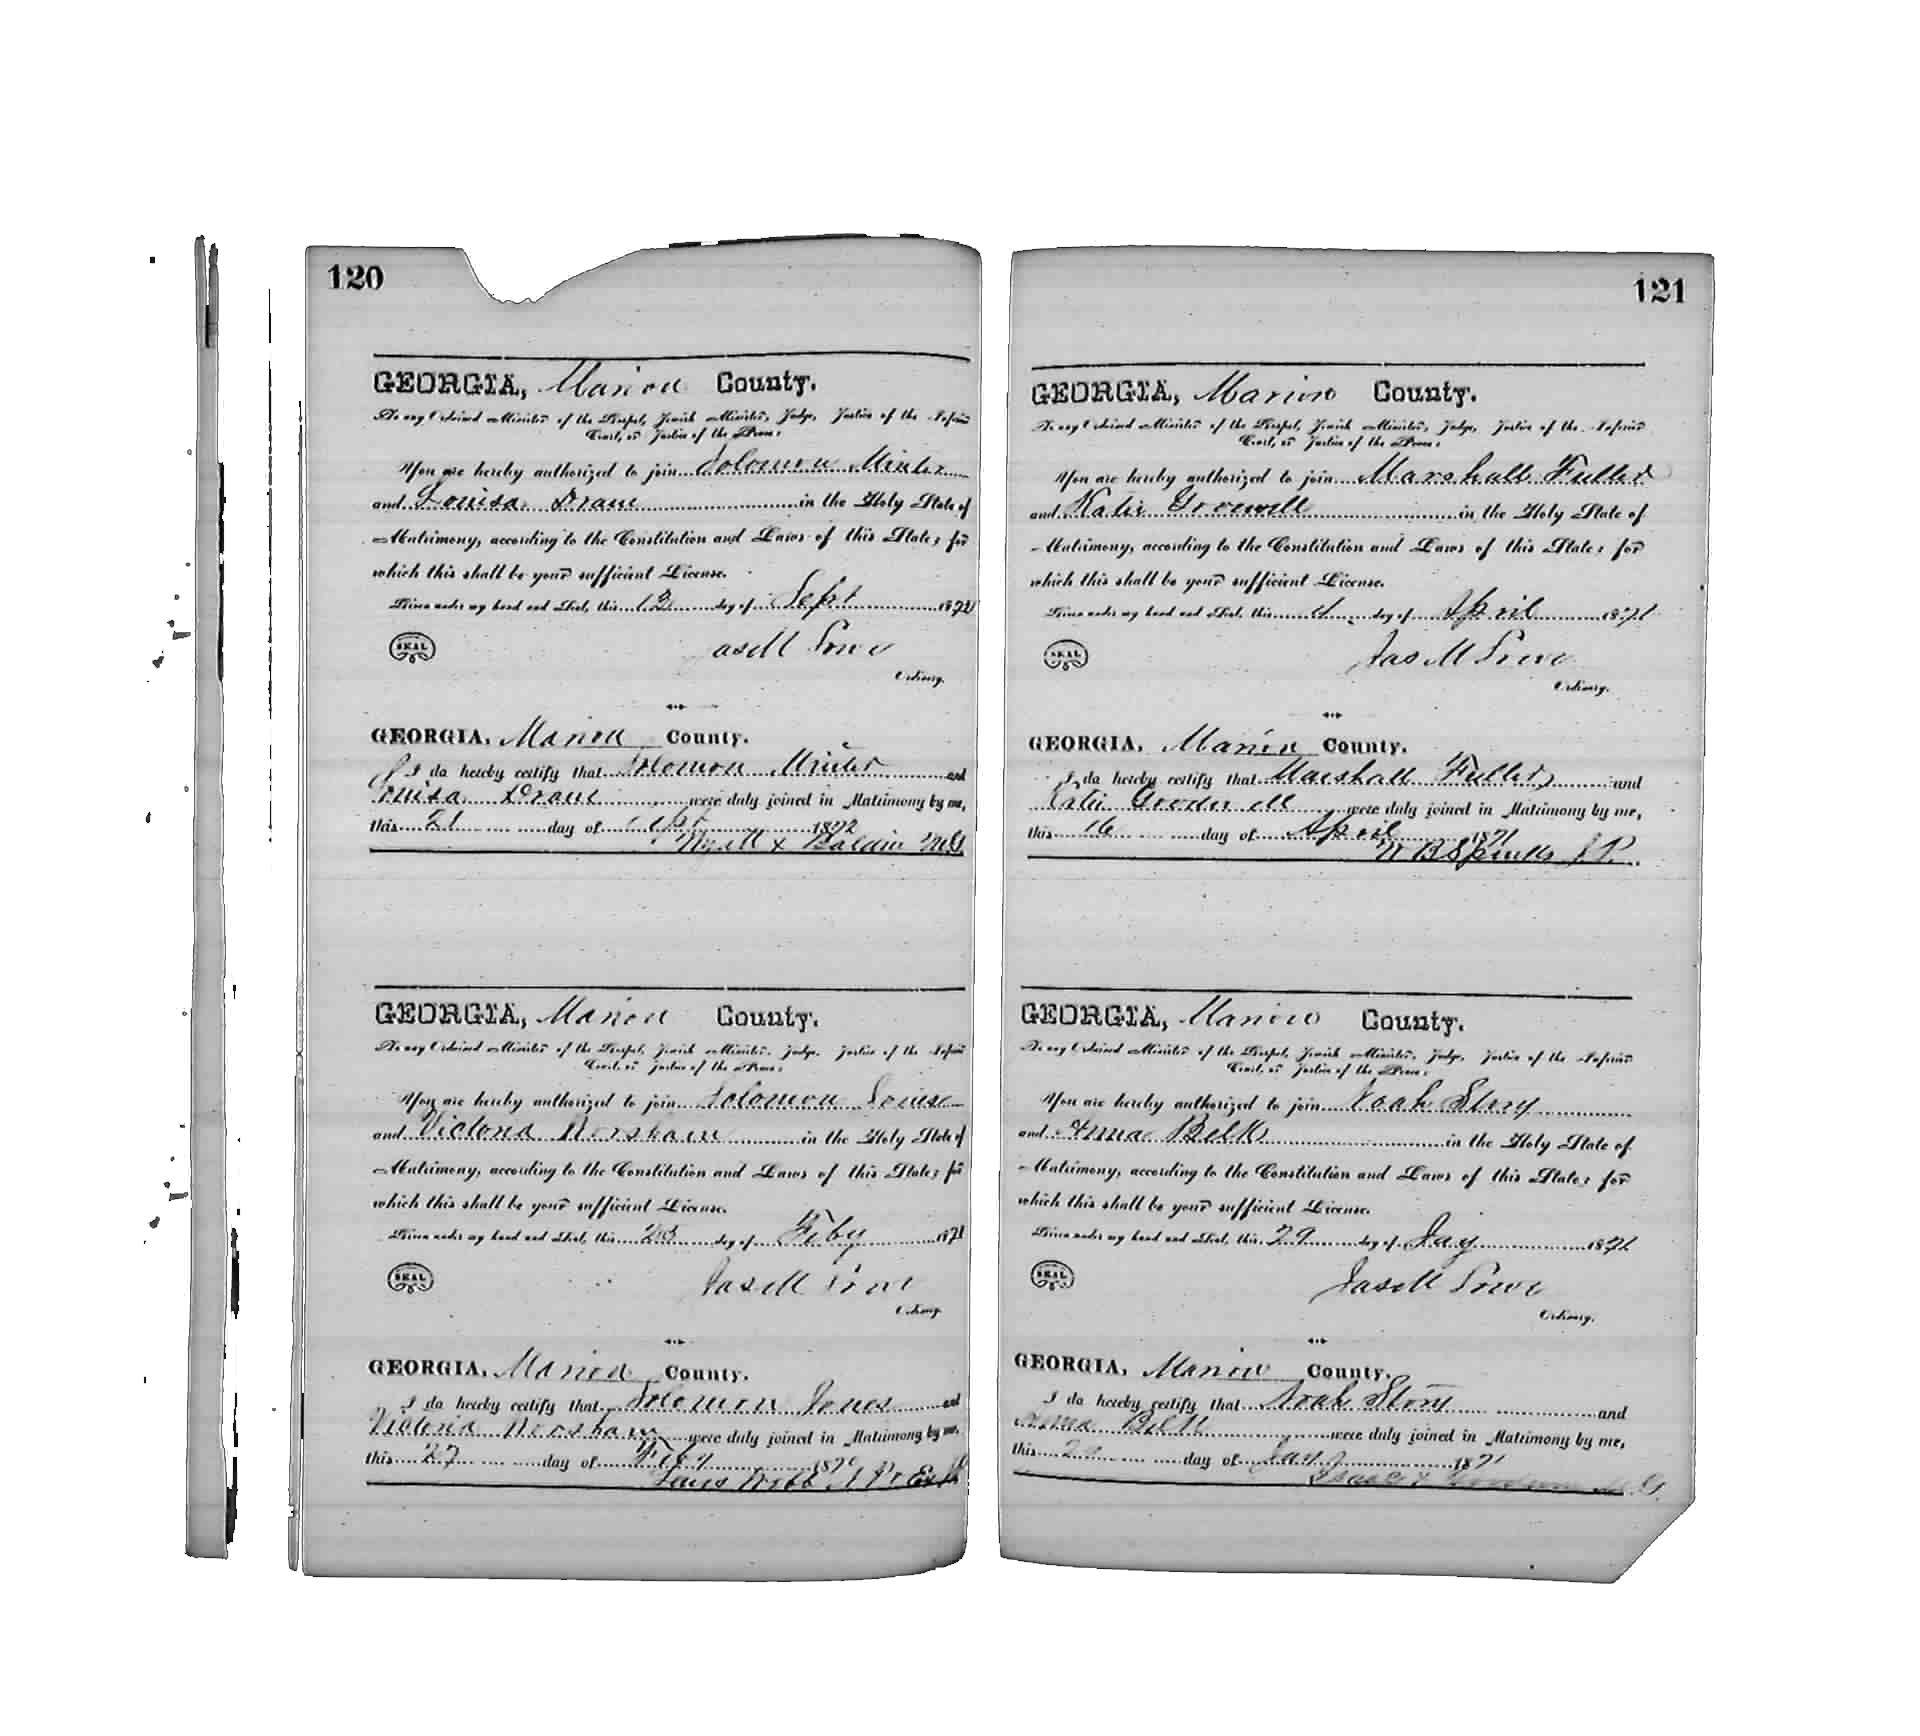 120
GEORGIA, Marion County.
To any Ordained Minister of the Gospel, Jewish Minister, Judge, Justice of the Inferior
Court, or Justice of the Peace:
You are hereby authorized to join Solomon Minter
and Louisa Drane in the Holy State of
Matrimony, according to the Constitution and Laws of this State; for
which this shall be your sufficient License.
Given under my hand and Seal, this 13 day of Sept 1872
SEAL
Jas M Lowe
Ordinary.
GEORGIA, Marion County.
I do hereby certify that Solomon Minter and
Louisa Drane were duly joined in Matrimony by me,
this 21 day of Sept 1872
Baldwin M.G.
GEORGIA, Marion County.
To any Ordained Minister of the Gospel, Jewish Minister, Judge, Justice of the Inferior
Court, or Justice of the Peace:
You are hereby authorized to join Solomon
and Victoria Worsham in the Holy State of
Matrimony, according to the Constitution and Laws of this State; for
which this shall be your sufficient License.
Given under my hand and Seal, this 23 day of Feby 1871
SEAL
Jas M Lowe
Ordinary.
GEORGIA, Marion County.
I do hereby certify that Solomon Jones and
Victoria Worsham were duly joined in Matrimony by me,
this 27 day of Feby 1871
Webb
121
GEORGIA, Marion County.
To any Ordained Minister of the Gospel, Jewish Minister, Judge, Justice of the Inferior
Court, or Justice of the Peace:
You are hereby authorized to join Marshall Fuller
and Katie in the Holy State of
Matrimony, according to the Constitution and Laws of this State; for
which this shall be your sufficient License.
Given under my hand and Seal, this 4 day of April 1871
SEAL
Jas M Lowe
Ordinary.
GEORGIA, Marion County.
I do hereby certify that Marshall Fuller and
Katie were duly joined in Matrimony by me,
this 16 day of April 1871
W B Spinks J.P.
GEORGIA, Marion County.
To any Ordained Minister of the Gospel, Jewish Minister, Judge, Justice of the Inferior
Court, or Justice of the Peace:
You are hereby authorized to join Noah Story
and Anna Belk in the Holy State of
Matrimony, according to the Constitution and Laws of this State; for
which this shall be your sufficient License.
Given under my hand and Seal, this 29 day of Jay 1871
SEAL
Jas M Lowe
Ordinary.
GEORGIA, Marion County.
I do hereby certify that Noah Story and
Anna Belk were duly joined in Matrimony by me,
this 29 day of Jay 1871
Isaac